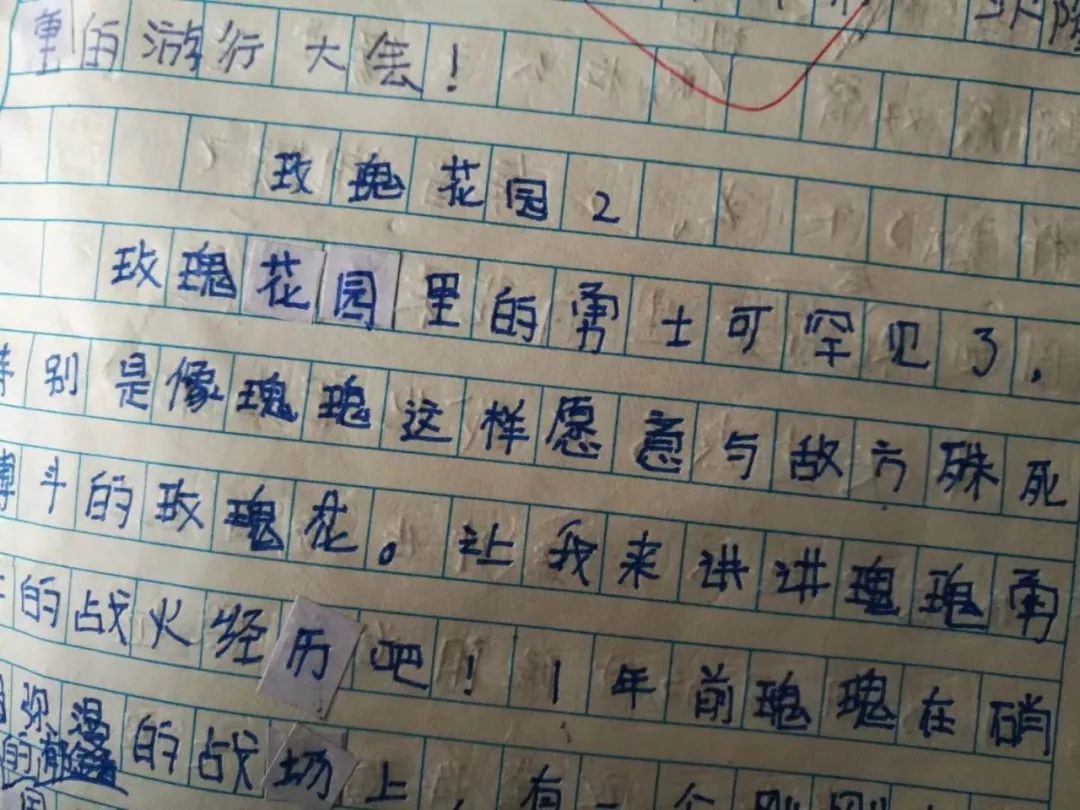 里的游行大会！
玫瑰花园2
玫瑰花园里的勇士可罕见了，
特别是像瑰瑰这样愿意与敌方殊死
搏斗的玫瑰花。让我来讲讲瑰瑰勇
士的战火经历吧！1年前瑰瑰在硝
烟弥漫的战场上，有一个